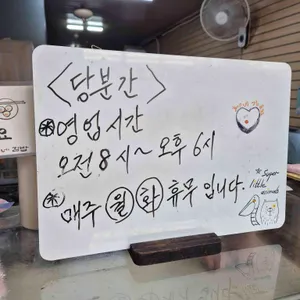 <당분간>
※영업시간
오전 8시~오후 6시
※매주 월 화 휴무 입니다.
* Super
little
animals